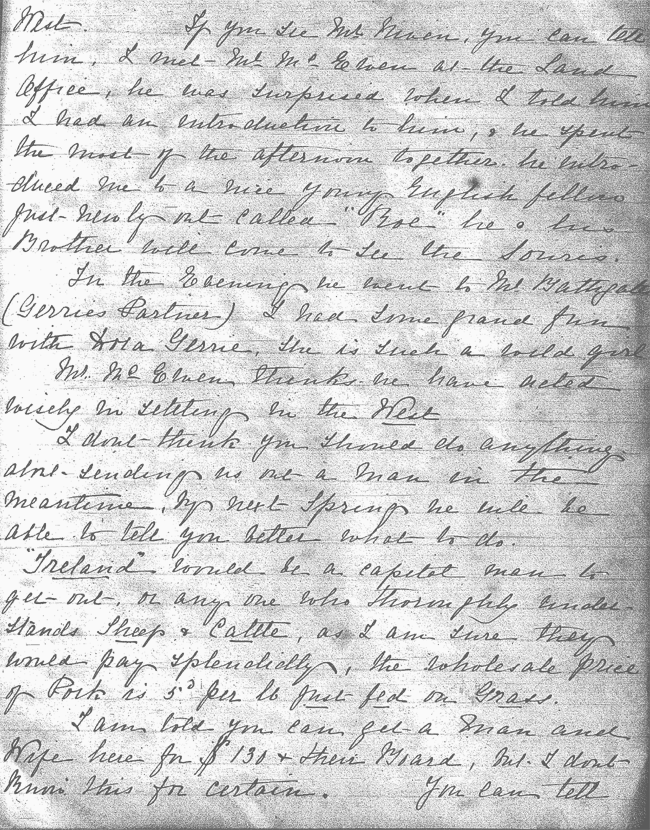 West. If you see Mr. Niven, you can tell
him, I met Mr. McEwen at the Land
Office, he was surprised when I told him
I had an introduction to him, & we spent
the most of the afternoon together. he intro-
duced me to a nice young English fellow
just newly out called "Roe" he & his
Brother will come to see the Souris.
In the Evening we went to Mr.
(Gerries Partner) I had some grand fun
with Gerrie, she is such a wild girl
Mr. McEwen thinks we have acted
wisely in settling in the West
I dont think you should do anything
abot sending us out a Man in the
meantime, by next Spring we will be
able to tell you better what to do.
"Ireland" would be a capital man to
get out, or any one who thoroughly under-
stands Sheep & Cattle, as I am sure they
would pay splendidly, the wholesale price
of Pork is 5d per lb just fed on Grass.
I am told you can get a Man and
Wife here for $130 & their Board, but I dont
Know this for certain. You can tell